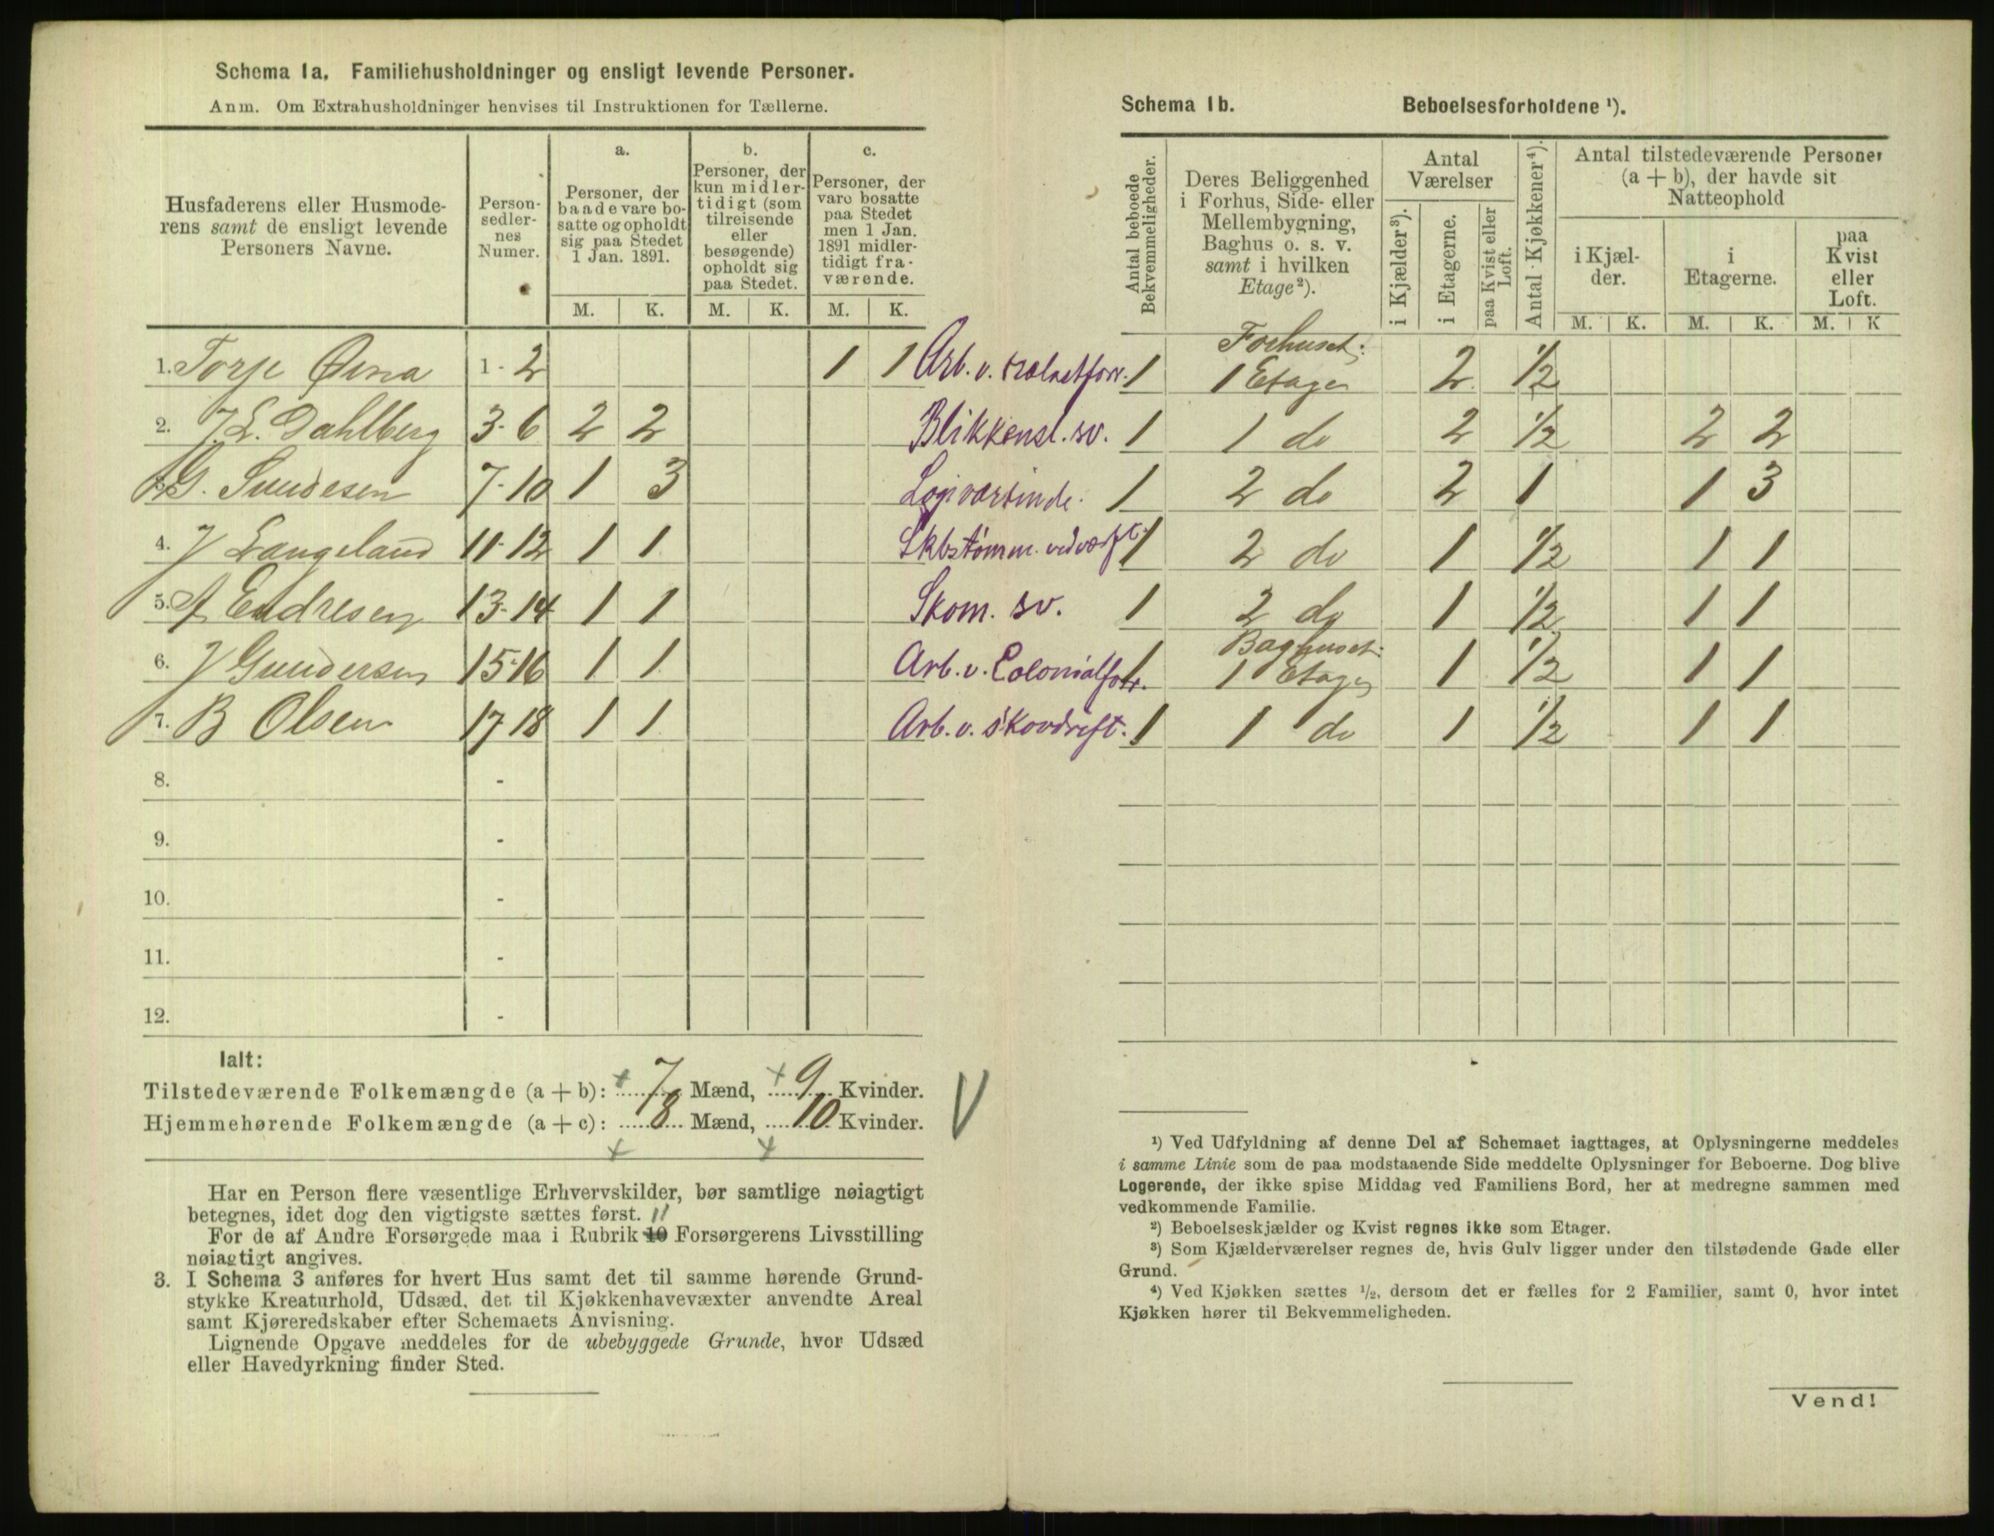 Schema 1a. Familiehusholdninger og ensligt levende Personer.
Anm. Om Extrahusholdninger henvises til Instruktionen for Tællerne.
Husfaderens eller Husmode-
rens samt de ensligt levende
Personers Navne.
Person-
sedler-
nes
Numer.
a.
Personer, der
baade vare bo-
satte og opholdt
sig paa Stedet
1 Jan. 1891.
b.
Personer, der
kun midler-
tidigt (som
tilreisende
eller
besøgende)
opholdt sig
paa Stedet.
c.
Personer, der
vare bosatte
paa Stedet
men 1 Jan.
1891 midler-
tidigt fra-
værende.
M. K. M. K. M. K.
1. Torje 1-2 1 1 Arb. v.
2. J. E. Dahlberg 3-6 2 2 Blikkensl. sv.
3. G. 7-10 1 3 Logiværtinde.
4. J Langeland 11-12 1 1
5. A Endresen 13-14 1 1 Skom. sv.
6. J Gundersen 15-16 1 1 Arb. v. Colonialforr.
7. B Olsen 17-18 1 1 Arb. v. skovdrift.
8. -
9. -
10. -
11. -
12. -
Ialt:
Tilstedeværende Folkemængde (a + b): 7 Mænd, 9 Kvinder.
Hjemmehørende Folkemængde (a + c): 8 Mænd, 10 Kvinder.
Har en Person flere væsentlige Erhvervskilder, bør samtlige nøiagtigt
betegnes, idet dog den vigtigste sættes først.
11
For de af Andre Forsørgede maa i Rubrik 10 Forsørgerens Livsstilling
nøiagtigt angives.
3. I Schema 3 anføres for hvert Hus samt det til samme hørende Grund-
stykke Kreaturhold, Udsæd, det til Kjøkkenhavevæxter anvendte Areal
samt Kjøreredskaber efter Schemaets Anvisning.
Lignende Opgave meddeles for de ubebyggede Grunde, hvor Udsæd
eller Havedyrkning finder Sted.
Schema 1b. Beboelsesforholdene ¹).
Antal beboede
Bekvemmeligheder.
Deres Beliggenhed
i Forhus, Side- eller
Mellembygning,
Baghus o. s. v.
samt i hvilken
Etage²).
Antal
Værelser
i Kjælder³).
i Etagerne.
paa Kvist eller
Loft.
Antal Kjøkkener⁴).
Antal tilstedeværende Personer
(a + b), der havde sit
Natteophold
i Kjæl-
der.
i
Etagerne.
paa
Kvist
eller
Loft.
M. K. M. K. M. K
Forhuset:
1 1 Etager 2 1/2
1 1 do 2 1/2 2 2
1 2 do 2 1 1 3
1 2 do 1 1/2 1 1
1 2 do 1 1/2 1 1
Baghuset:
1 1 Etager 1 1/2 1 1
1 1 do 1 1/2 1 1
¹) Ved Udfyldning af denne Del af Schemaet iagttages, at Oplysningerne meddeles
i samme Linie som de paa modstaaende Side meddelte Oplysninger for Beboerne. Dog blive
Logerende, der ikke spise Middag ved Familiens Bord, her at medregne sammen med
vedkommende Familie.
²) Beboelseskjælder og Kvist regnes ikke som Etager.
³) Som Kjælderværelser regnes de, hvis Gulv ligger under den tilstødende Gade eller
Grund.
⁴) Ved Kjøkken sættes ½, dersom det er fælles for 2 Familier, samt 0, hvor intet
Kjøkken hører til Bekvemmeligheden.
Vend!